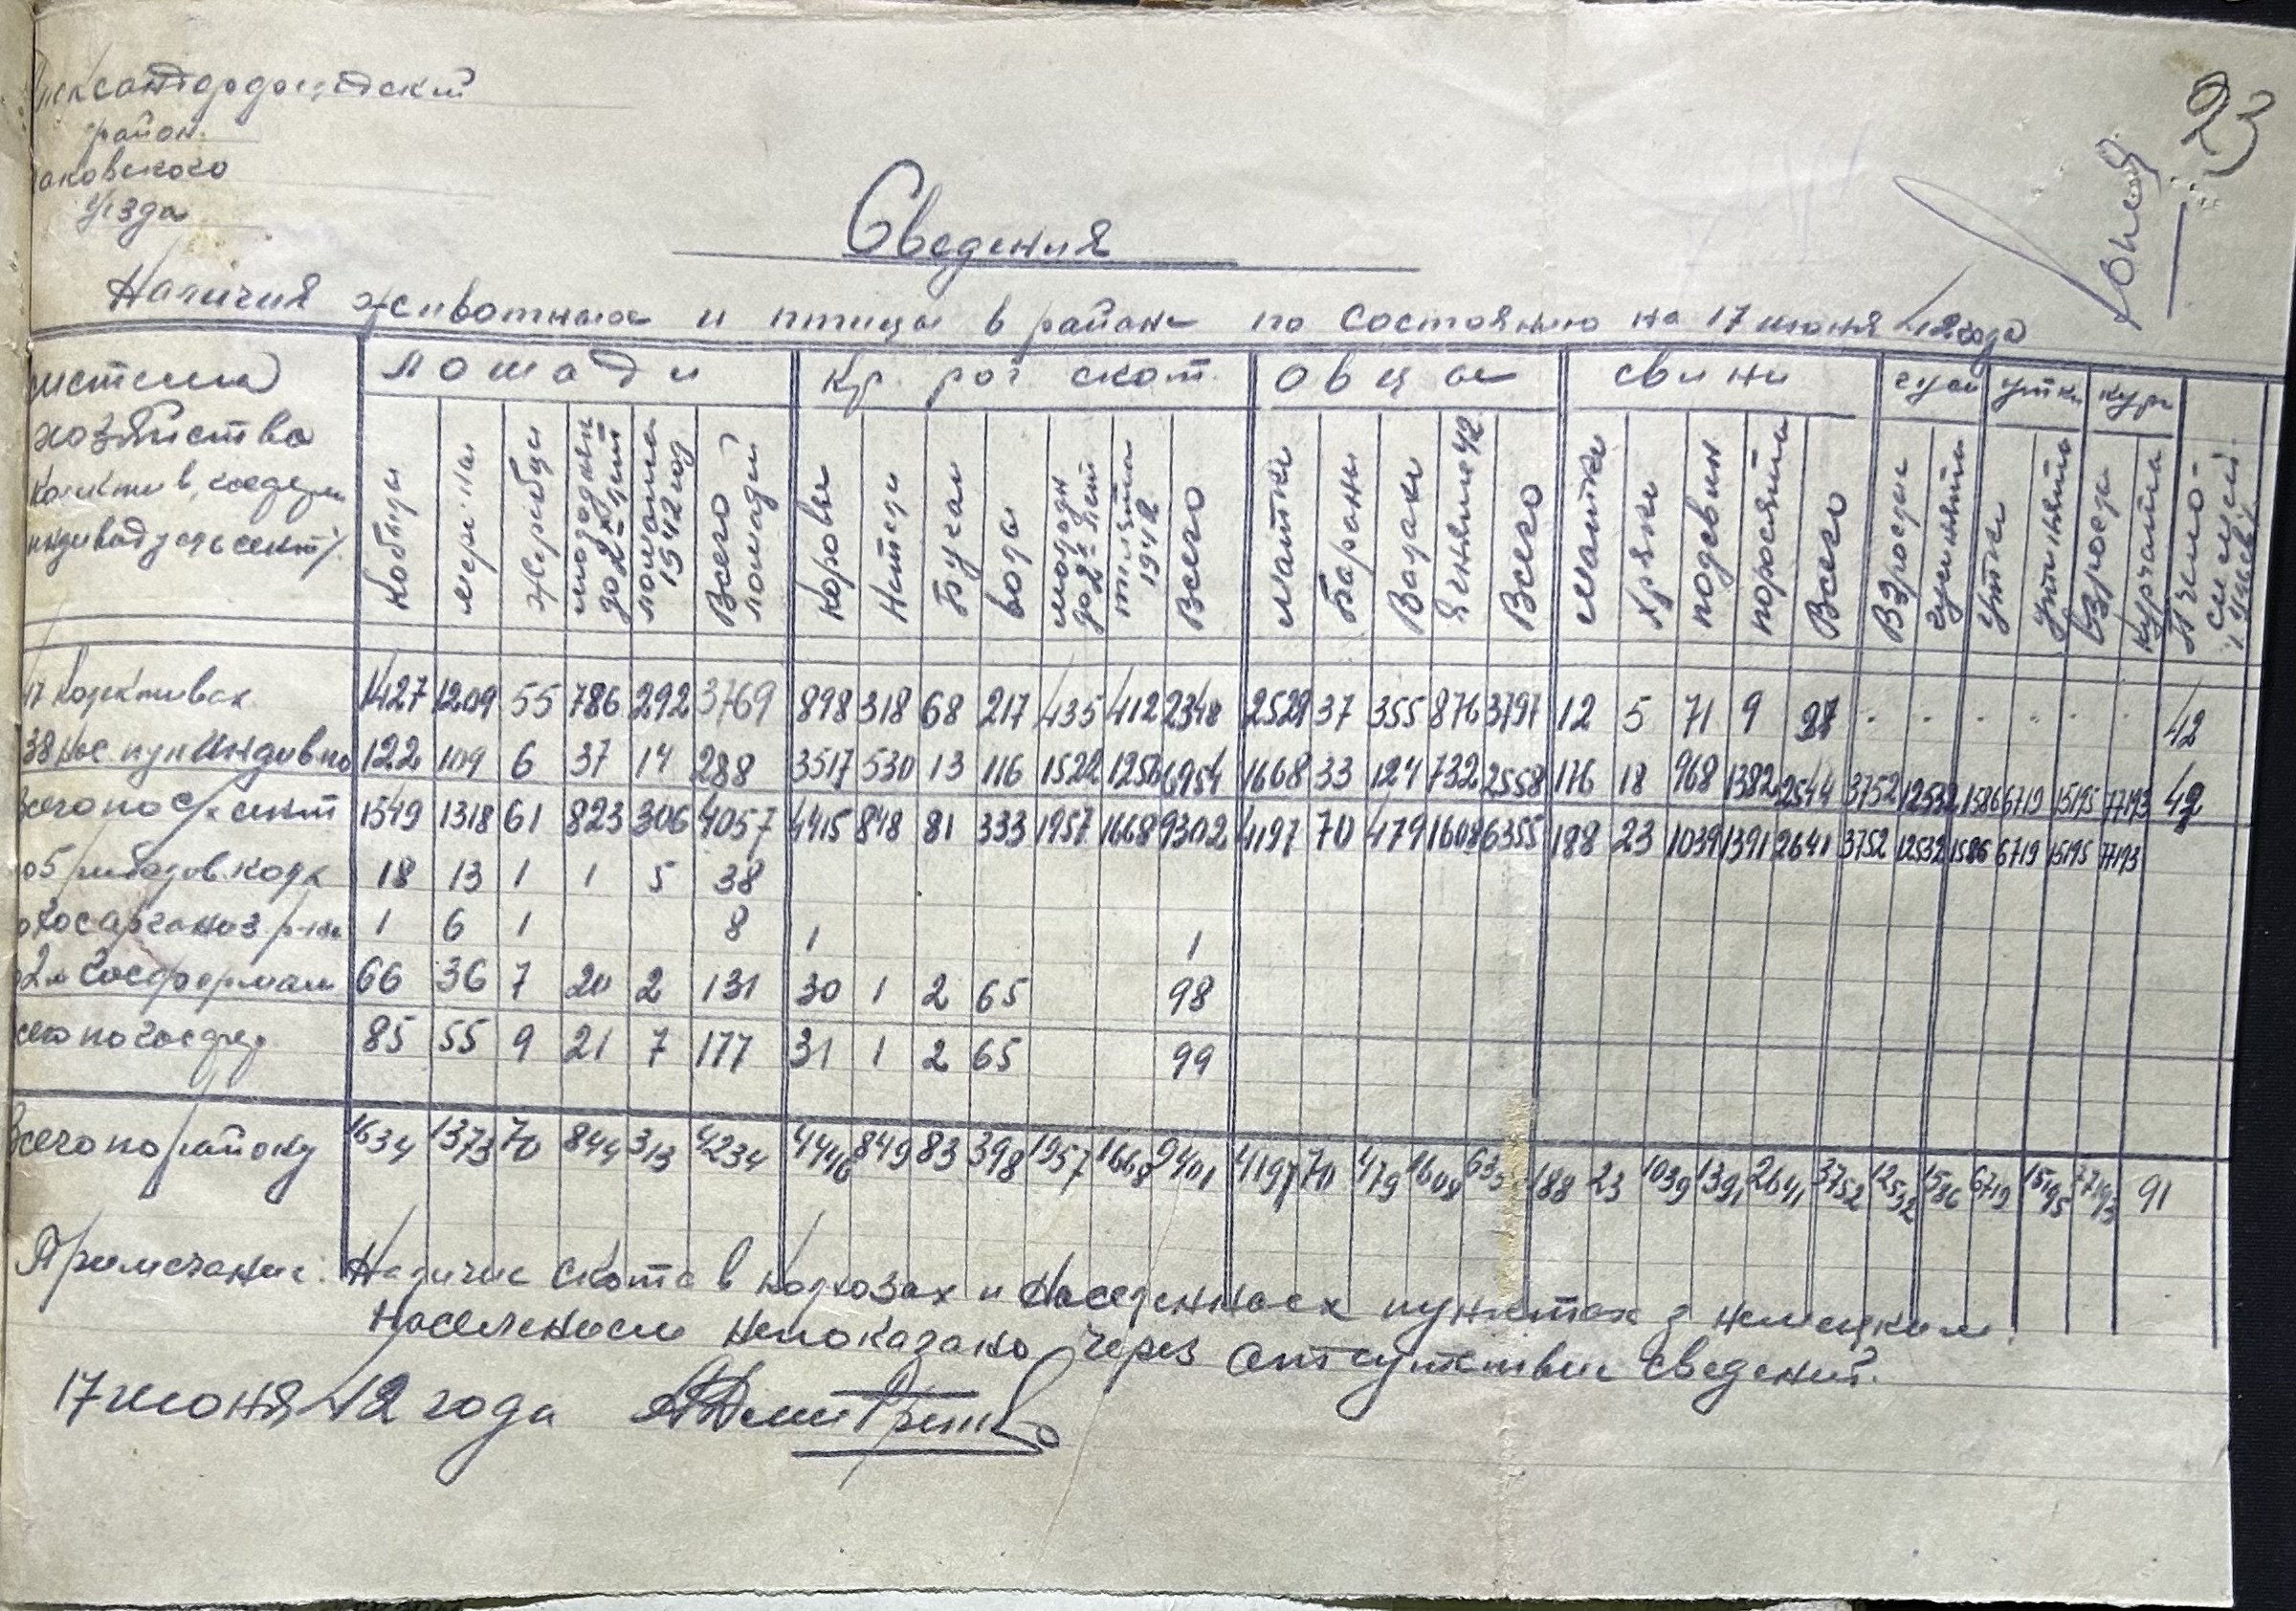 23
Копия
район
уезда
Сведения
Наличия животных и птицы в районе по состоянию на 17 июня 42 года
хозяйства
лошади | Кр. рог скот. | Овцы | свиньи | гуси | утки | куры
Кобылы | мерины | жеребцы | молодняк до 2х лет | лошата 1942 год | Всего лошадей | Коровы | Нетели | Бугаи | волы | молодн до 2х лет | телята 1942 | Всего | матки | Бараны | Валахи | Ягнята 42 | Всего | матки | Хряки | подсвин | поросята | Всего | Взрослые | гусинята | утки | утинята | Взрослы | курчата
1427 1209 55 786 292 3769 898 318 68 217 435 412 2348 2529 37 355 876 3797 12 5 71 9 97 42
122 109 6 37 14 288 3517 530 13 116 1522 1256 6954 1668 33 124 732 2558 176 18 968 1382 2544 3752 12532 1586 6719 15195 77193 49
1549 1318 61 823 306 4057 4415 848 81 333 1957 1668 9302 4197 70 479 1608 6355 188 23 1039 1391 2641 3752 12532 1586 6719 15195 77193
18 13 1 1 5 38
1 6 1 8 1 1
Госфермам 66 36 7 20 2 131 30 1 2 65 98
85 55 9 21 7 177 31 1 2 65 99
Всего по району 1634 1373 70 844 313 4234 4446 849 83 398 1957 1668 9401 4197 70 479 1608 635 188 23 1039 1391 2641 3752 12532 1586 6719 15195 77193 91
Примечание: Наличие скота в колхозах и населенных пунктах з немецким
населением непоказано через отсутствие сведений.
17 июня 42 года